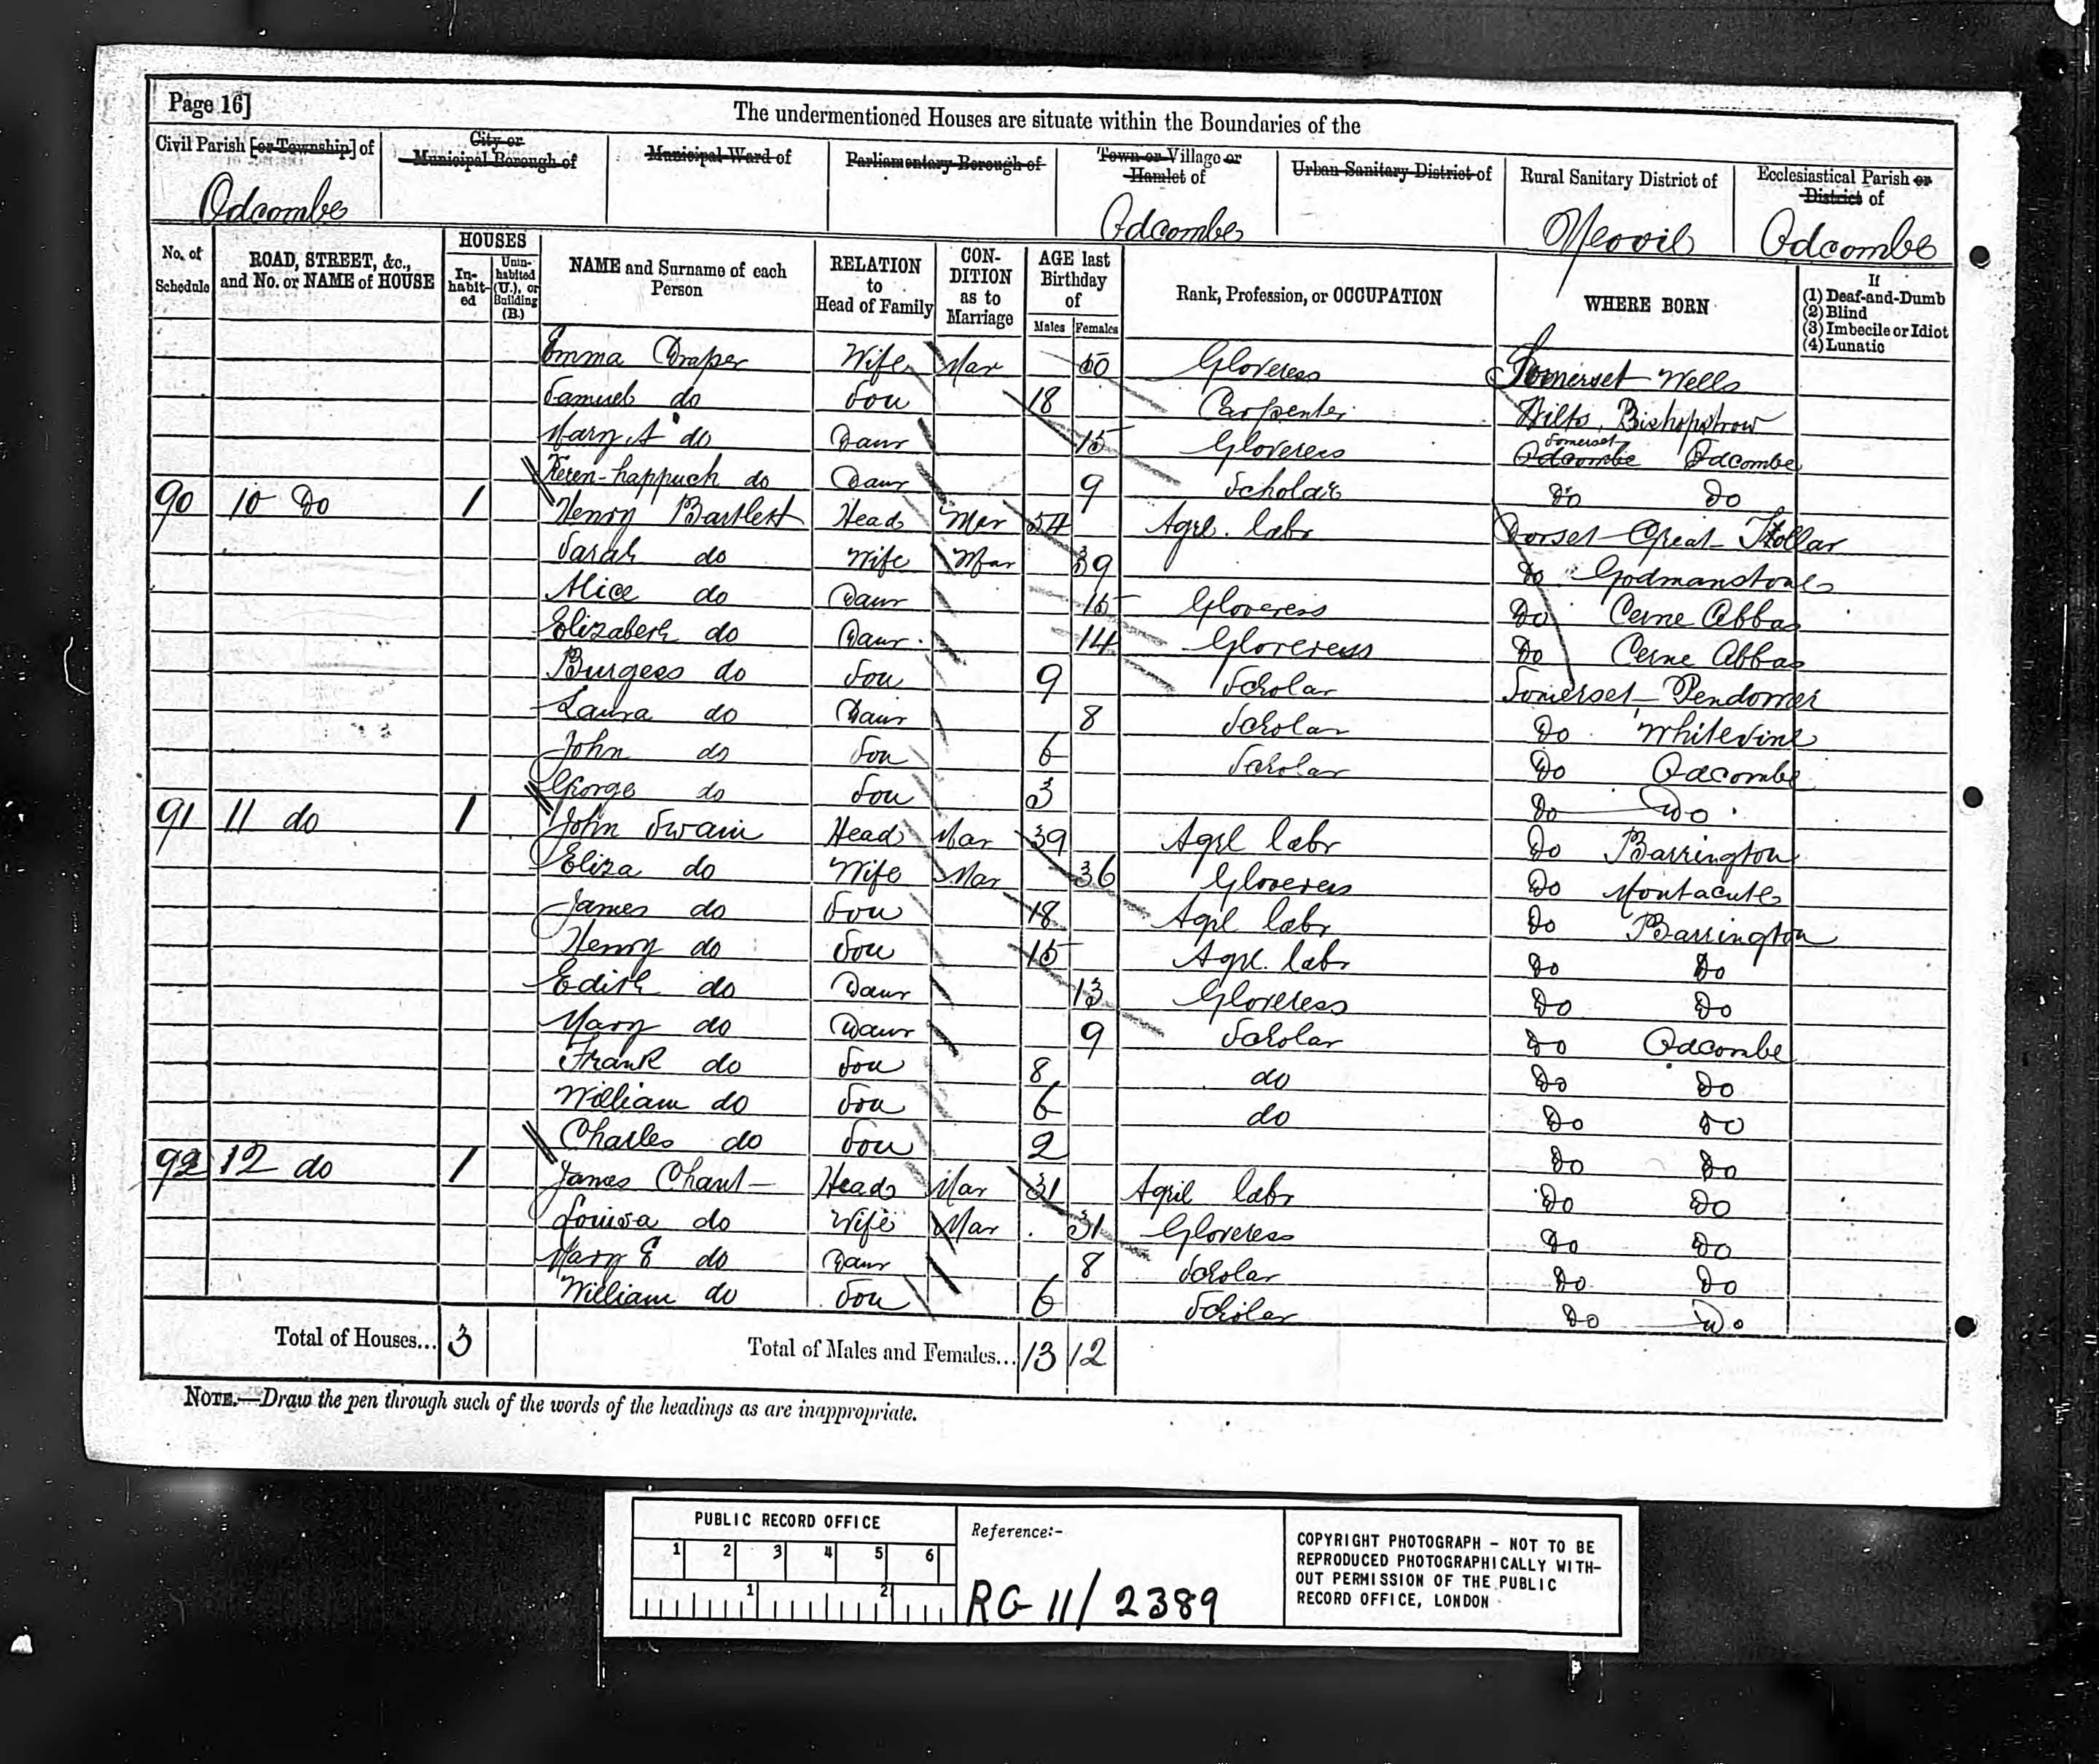 Page 16]
The undermentioned Houses are situate within the Boundaries of the
Civil Parish [or Township] of Odcombe
City or Municipal Borough of
Municipal Ward of
Parliamentary Borough of
Town or Village or Hamlet of Odcombe
Urban Sanitary District of
Rural Sanitary District of Yeovil
Ecclesiastical Parish or District of Odcombe
No. of Schedule
ROAD, STREET, &c., and No. or NAME of HOUSE
HOUSES
In-habit-ed
Unin-habited (U.), or Building (B.)
NAME and Surname of each Person
RELATION to Head of Family
CON-DITION as to Marriage
AGE last Birthday of
Males Females
Rank, Profession, or OCCUPATION
WHERE BORN
If
(1) Deaf-and-Dumb
(2) Blind
(3) Imbecile or Idiot
(4) Lunatic
Emma Draper Wife Mar 50 Gloveress Somerset Wells
Samuel do Son 18 Carpenter Wilts, Bishopstrow
Mary A do Daur 15 Gloveress Odcombe Somerset Odcombe
Keren-happuch do Daur 9 Scholar Do Do
90 10 Do 1 Henry Bartlett Head Mar 54 Agrl. labr Dorset Great Toller
Sarah do Wife Mar 39 Do Godmanstone
Alice do Daur 15 Gloveress Do Cerne Abbas
Elizabeth do Daur 14 Gloveress Do Cerne Abbas
Burgess do Son 9 Scholar Somerset Pendomer
Laura do Daur 8 Scholar Do Whitevine
John do Son 6 Scholar Do Odcombe
George do Son 3 Do Do
91 11 do 1 John Swain Head Mar 39 Agrl labr Do Barrington
Eliza do Wife Mar 36 Gloveress Do Montacute
James do Son 18 Agrl labr Do Barrington
Henry do Son 15 Agrl. labr Do Do
Edith do Daur 13 Gloveress Do Do
Mary do Daur 9 Scholar Do Odcombe
Frank do Son 8 do Do Do
William do Son 6 do Do Do
Charles do Son 2 Do Do
92 12 do 1 James Chant Head Mar 31 Agril labr Do Do
Louisa do Wife Mar 31 Gloveress Do Do
Mary E do Daur 8 Scholar Do Do
William do Son 6 Scholar Do Do
Total of Houses... 3 Total of Males and Females... 13 12
NOTE.—Draw the pen through such of the words of the headings as are inappropriate.
PUBLIC RECORD OFFICE
1 2 3 4 5 6
1 2
Reference:-
RG 11/2389
COPYRIGHT PHOTOGRAPH - NOT TO BE
REPRODUCED PHOTOGRAPHICALLY WITH-
OUT PERMISSION OF THE PUBLIC
RECORD OFFICE, LONDON